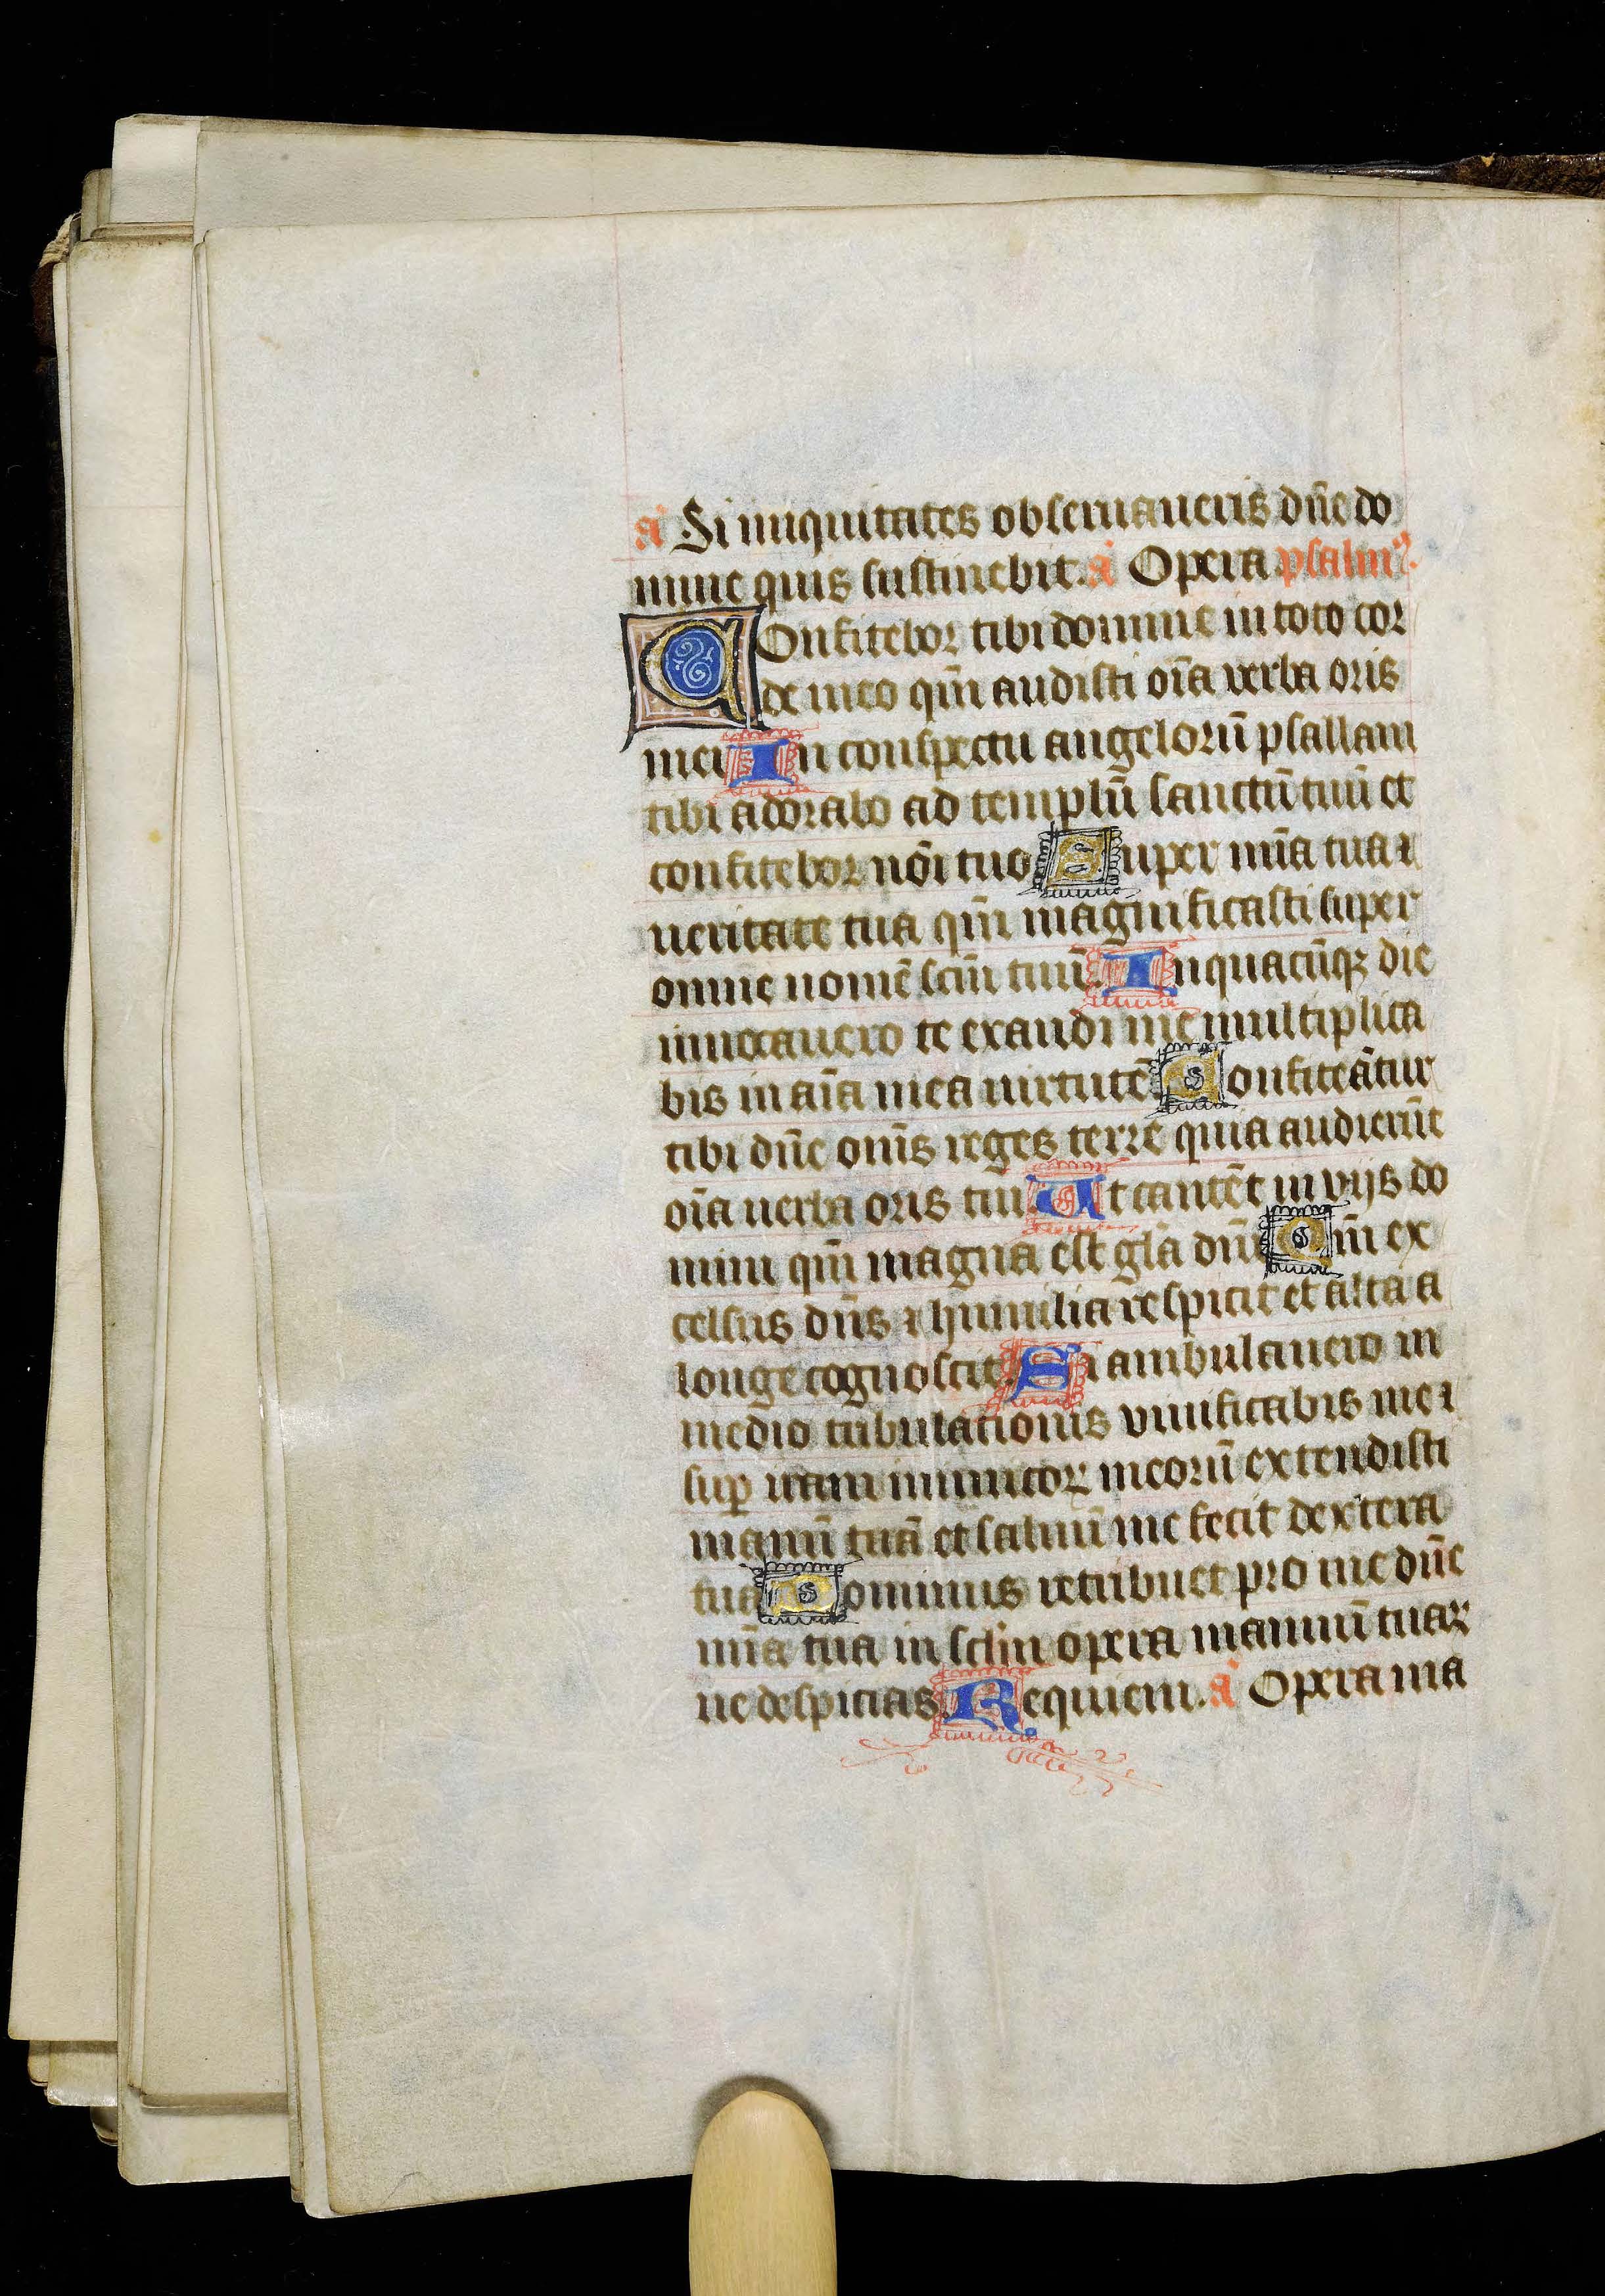 a Si iniquitates obseruaueris dn̄e do
mine quis sustinebit. a Opera psalmꝰ.
Confitebor tibi domine in toto cor
de meo qm̄ audisti oīa uerba oris
mei In conspectu angelorū psallam
tibi adorabo ad templū sanctū tuū et
confitebor nōi tuo Super mīa tua ⁊
ueritate tua qm̄ magnificasti super
omne nomē scm̄ tuū. In quacūqꝫ die
inuocauero te exaudi me multiplica
bis in aīa mea uirtutē Confiteātur
tibi dn̄e om̄s reges terre quia audierūt
oīa uerba oris tui. Et cantēt in vijs do
mini qm̄ magna est glā dn̄i Qm̄ ex
celsus dn̄s ⁊ humilia respicit et alta a
longe cognoscit. Si ambulauero in
medio tribulationis viuificabis me ⁊
suꝑ iram inimicoꝝ meorū extendisti
manū tuā et saluū me fecit dextera
tua Dominus retribuet pro me dn̄e
mīa tua in sclm̄ opera manuū tuaꝝ
ne despicias. Requiem. a Opera ma